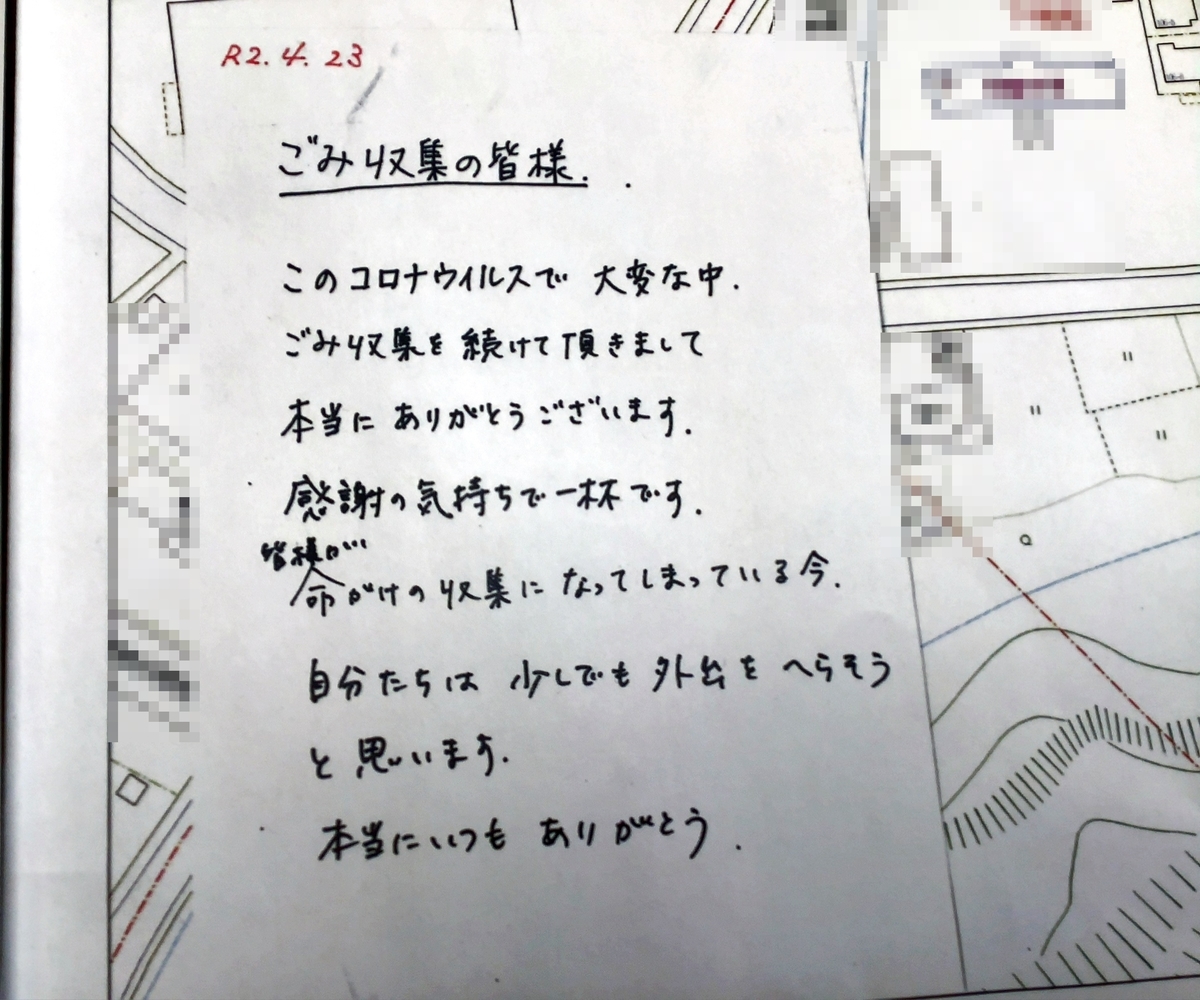 R2.4.23
ごみ収集の皆様.
このコロナウイルスで 大変な中.
ごみ収集を 続けて頂きまして
本当に ありがとうございます.
感謝の気持ちで一杯です.
皆様が
命がけの収集に なってしまっている今.
自分たちは 少しでも 外出を へらそう
と思います.
本当にいつも ありがとう.